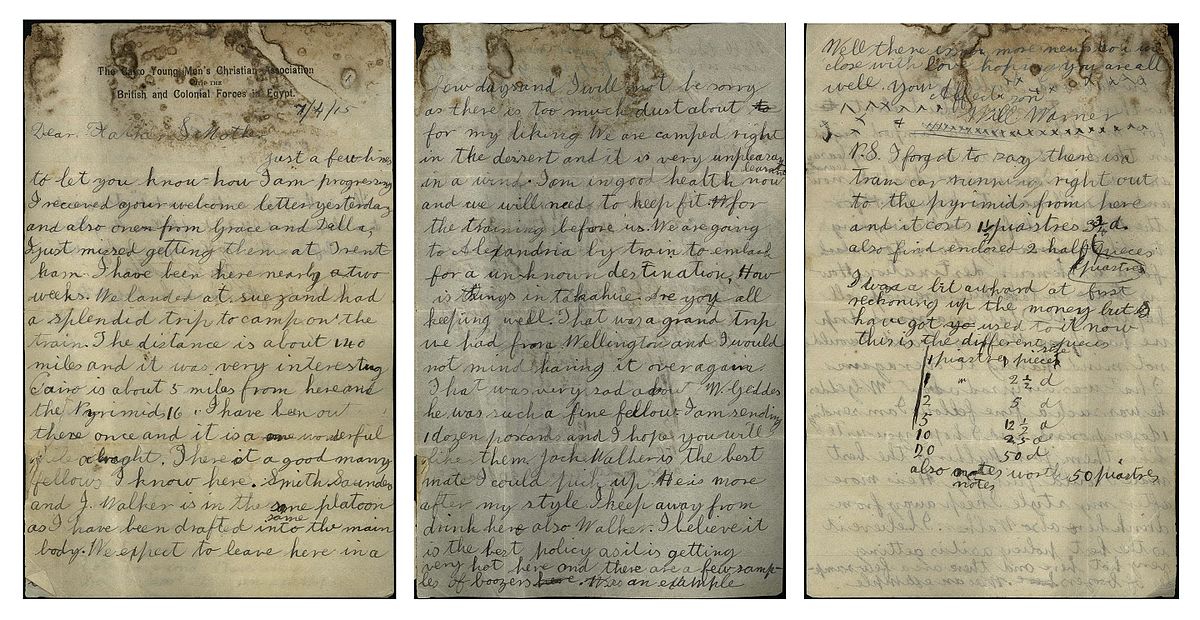 The Cairo Young Men's Christian Association
British and Colonial Forces in Egypt.
7/4/15
Dear Father & Mother
just a few lines
to let you know how I am progressing
I recieved your welcome letter yesterday
and also one from Grace and Della,
I just missed getting them at Trent
ham. I have been here nearly a two
weeks. We landed at suez and had
a splendid trip to camp on the
train. The distance is about 140
miles and it was very interesting
Cairo is about 5 miles from here and
the Pyrimids 16. I have been
there once and it is a one wonderful
alright. There is a good many
fellows I know here. Smith Saunders
and J. Walker is in the same platoon
same
as I have been drafted into the main
body. We expect to leave here in a
few days and I will not be sorry
as there is too much dust about to
for my liking We are camped right
in the dessert and it is very unpleasant
in a wind. I am in good health now
and we will need to keep fit for
the training before us. We are going
to Alexandria by train to embark
for a unknown destination, How
is things in takahue. Are you all
keeping well. That was a grand trip
we had from Wellington and I would
not mind having it over again.
That was very sad about W. Geddes
he was such a fine fellow. I am sending
1 dozen poscards and I hope you will
like them. Jack Walker is the best
mate I could pick up. He is more
after my style. I keep away from
drink here also Walker. I believe it
is the best policy as it is getting
very hot here and there are a few samp-
les of boozers here. as an example
Well there is no more news so I will
close with love hoping you are all
well. Your Affection
Will Warner
P.S. I forgot to say there is a
tram car running right out
to the pyrimids from here
and it costs 1½ piastres 3¾ d.
also find enclosed 2 half pieces
piastres
I was a bit awkard at first
reckoning up the money but I
have got yo used to it now
this is the different pieces
1 piastre piece
1 " 2½ d
2 5 d
5 12½ d
10 25 d
20 50 d
also notes worth 50 piastres
notes